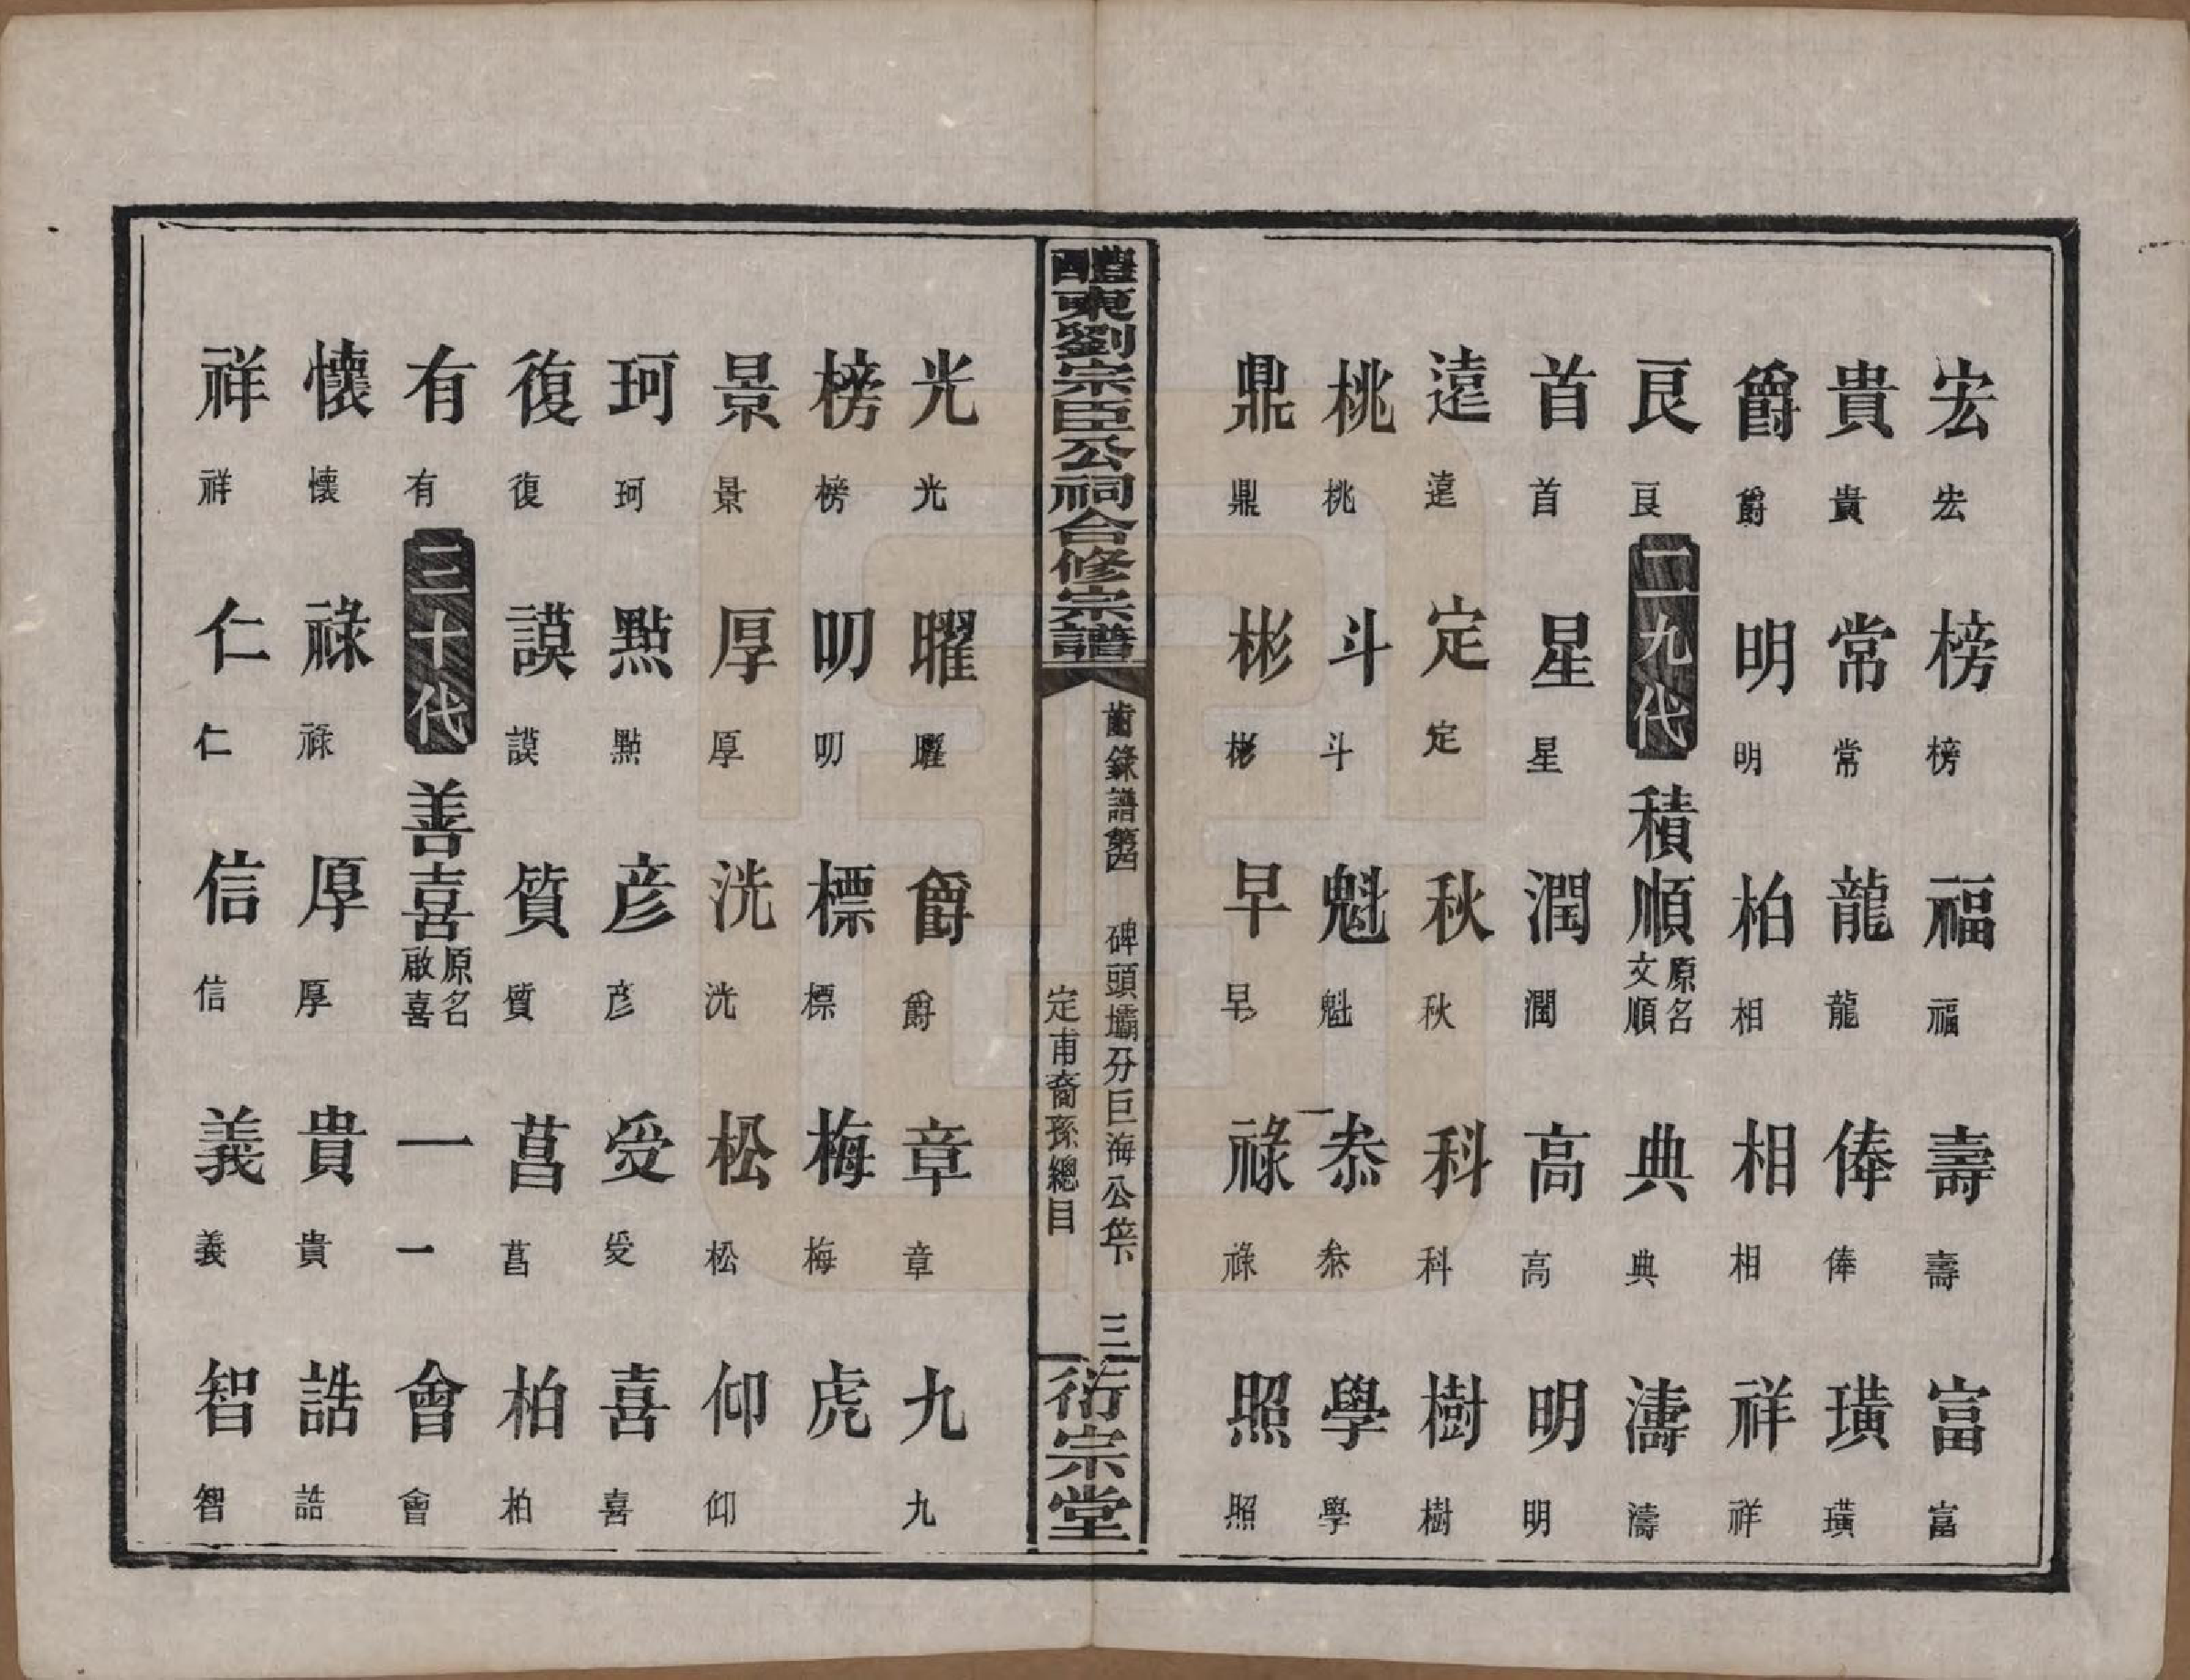 宏 宏 榜 榜 福 福 壽 壽 富 富
貴 貴 常 常 龍 龍 俸 俸 璜 璜
爵 爵 明 明 柏 相 相 相 祥 祥
艮 艮 二九代 積順 原名文順 典 典 濤 濤
首 首 星 星 潤 潤 高 高 明 明
遠 遠 定 定 秋 秋 科 科 樹 樹
桃 桃 斗 斗 魁 魁 恭 恭 學 學
鼎 鼎 彬 彬 早 早 祿 祿 照 照
醴東劉宗臣公祠合修宗譜
齒錄譜第四 碑頭壩分巨海公位下 三
定甫裔孫總目
衍宗堂
光 光 曜 曜 爵 爵 章 章 九 九
榜 榜 叨 叨 標 標 梅 梅 虎
景 景 厚 厚 洸 洸 松 松 仰 仰
珂 珂 點 點 彦 彦 受 受 喜 喜
復 復 謨 謨 質 質 菖 菖 柏 柏
有 有 三十代 善喜 原名啟喜 一 一 會 會
懷 懷 祿 祿 厚 厚 貴 貴 誥 誥
祥 祥 仁 仁 信 信 義 義 智 智